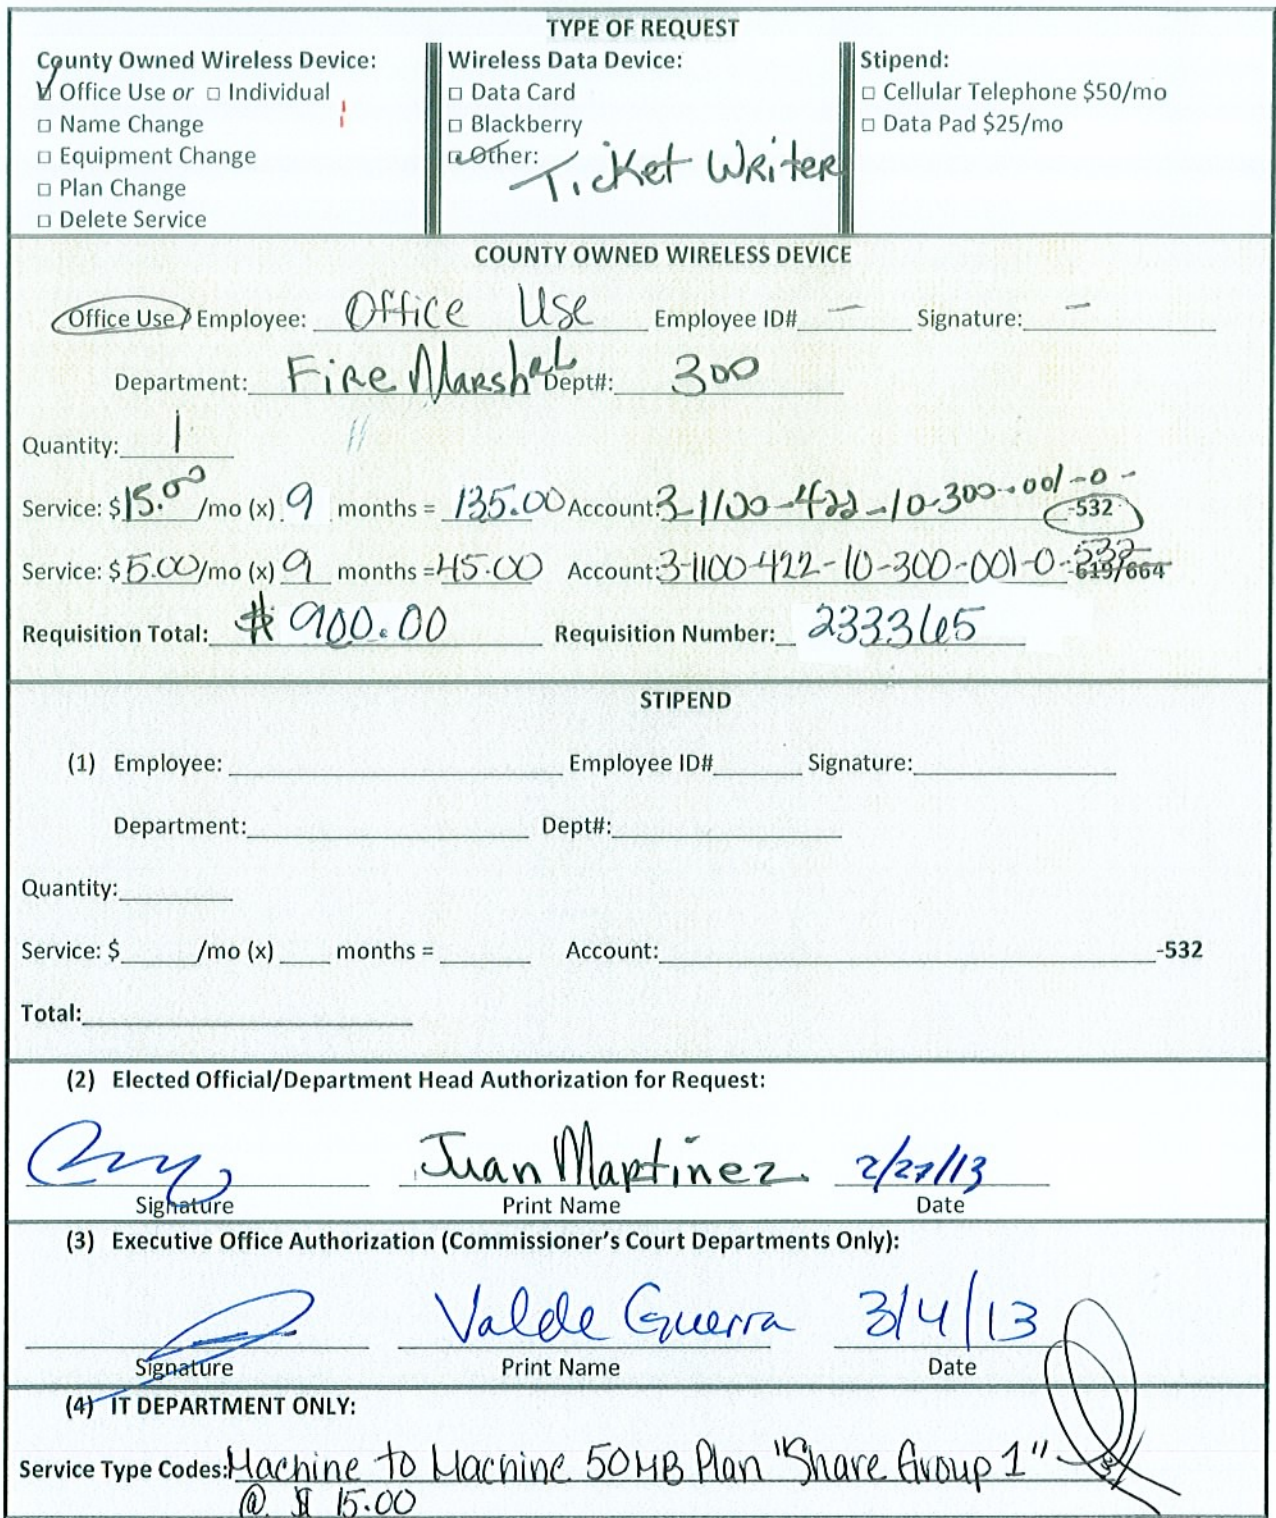 TYPE OF REQUEST
County Owned Wireless Device:
☑ Office Use or □ Individual
□ Name Change
□ Equipment Change
□ Plan Change
□ Delete Service
Wireless Data Device:
□ Data Card
□ Blackberry
☑ Other: Ticket Writer
Stipend:
□ Cellular Telephone $50/mo
□ Data Pad $25/mo
COUNTY OWNED WIRELESS DEVICE
Office Use/ Employee: Office Use Employee ID# — Signature: —
Department: Fire Marshal Dept#: 300
Quantity: 1
Service: $15.00 /mo (x) 9 months = 135.00 Account: 3-1100-422-10-300-001-0- -532
Service: $5.00/mo (x) 9 months = 45.00 Account: 3-1100-422-10-300-001-0-532 -619/664
Requisition Total: $ 900.00 Requisition Number: 233365
STIPEND
(1) Employee: Employee ID# Signature:
Department: Dept#:
Quantity:
Service: $ /mo (x) months = Account: -532
Total:
(2) Elected Official/Department Head Authorization for Request:
Juan Martinez 2/27/13
Signature Print Name Date
(3) Executive Office Authorization (Commissioner's Court Departments Only):
Valde Guerra 3/4/13
Signature Print Name Date
(4) IT DEPARTMENT ONLY:
Service Type Codes: Machine to Machine 50MB Plan "Share Group 1"
@ $ 15.00